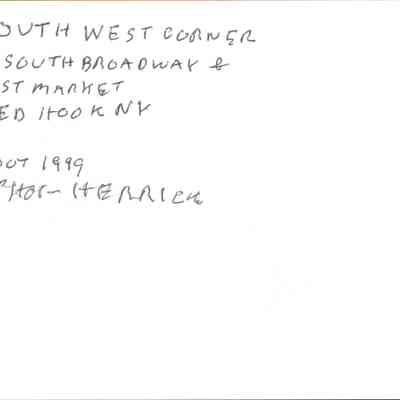 OUTH WEST CORNER
SOUTH BROADWAY &
ST MARKET
ED HOOK NY
OUT 1999
HERRICK